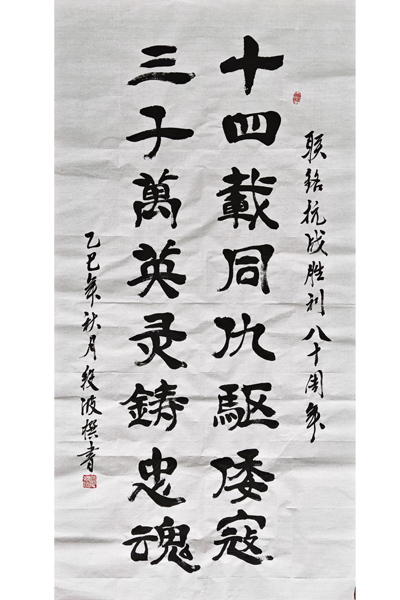 联铭抗战胜利八十周年
十四載同仇驅倭寇
三千萬英灵鑄忠魂
乙巳年秋月段波撰書